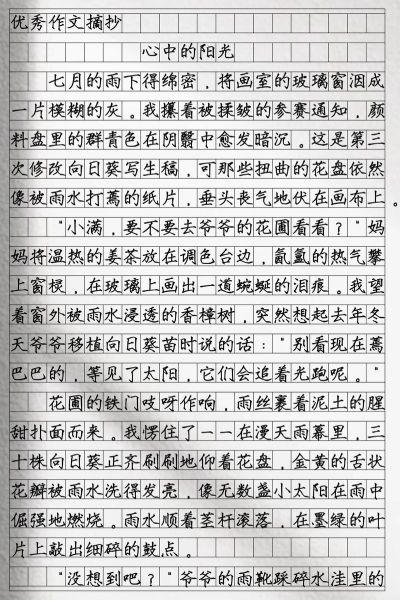 优秀作文摘抄
心中的阳光
七月的雨下得绵密，将画室的玻璃窗洇成
一片模糊的灰。我攥着被揉皱的参赛通知，颜
料盘里的群青色在阴翳中愈发暗沉。这是第三
次修改向日葵写生稿，可那些扭曲的花盘依然
像被雨水打蔫的纸片，垂头丧气地伏在画布上。
"小满，要不要去爷爷的花圃看看？"妈
妈将温热的姜茶放在调色台边，氤氲的热气攀
上窗棂，在玻璃上画出一道蜿蜒的泪痕。我望
着窗外被雨水浸透的香樟树，突然想起去年冬
天爷爷移植向日葵苗时说的话："别看现在蔫
巴巴的，等见了太阳，它们会追着光跑呢。"
花圃的铁门吱呀作响，雨丝裹着泥土的腥
甜扑面而来。我愣住了一一在漫天雨幕里，三
十株向日葵正齐刷刷地仰着花盘，金黄的舌状
花瓣被雨水洗得发亮，像无数盏小太阳在雨中
倔强地燃烧。雨水顺着茎杆滚落，在墨绿的叶
片上敲出细碎的鼓点。
"没想到吧？"爷爷的雨靴踩碎水洼里的